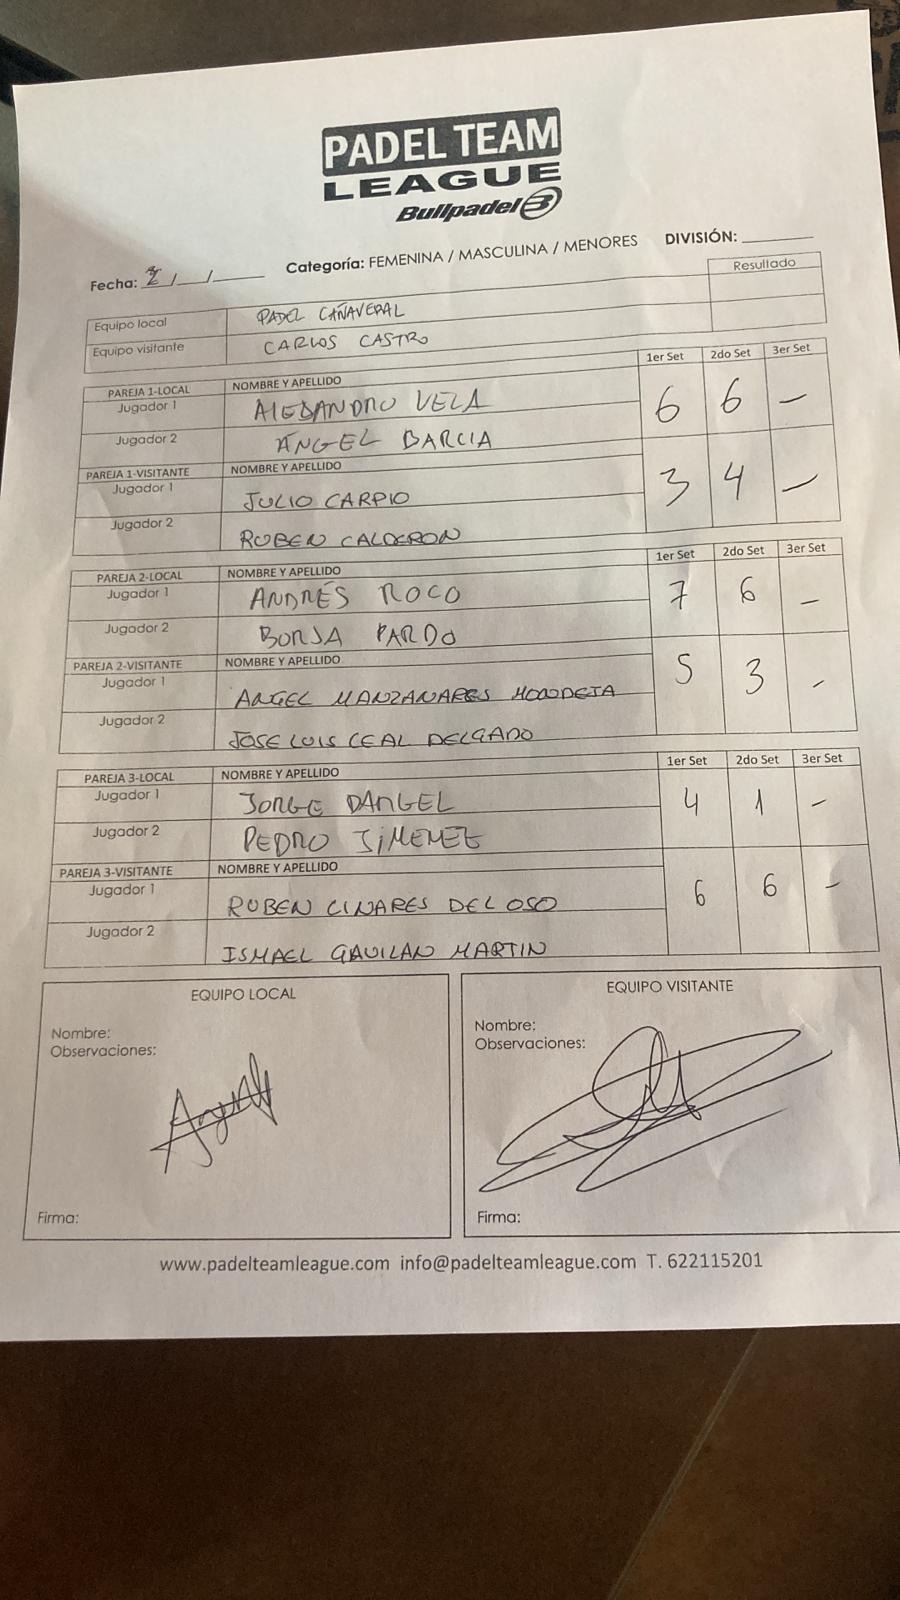 PADEL TEAM
LEAGUE
Bullpadel
Fecha: 2 /__/____ Categoría: FEMENINA / MASCULINA / MENORES DIVISIÓN: ______
Resultado
Equipo local PADEL CAÑAVERAL
Equipo visitante CARLOS CASTRO
PAREJA 1-LOCAL NOMBRE Y APELLIDO 1er Set 2do Set 3er Set
Jugador 1 ALEJANDRO VELA 6 6 –
Jugador 2 ÁNGEL BARCIA
PAREJA 1-VISITANTE NOMBRE Y APELLIDO
Jugador 1 JULIO CARPIO 3 4 –
Jugador 2 RUBEN CALDERON
PAREJA 2-LOCAL NOMBRE Y APELLIDO 1er Set 2do Set 3er Set
Jugador 1 ANDRÉS ROCO 7 6 –
Jugador 2 BORJA PARDO
PAREJA 2-VISITANTE NOMBRE Y APELLIDO
Jugador 1 ANGEL MANZANARES 5 3 –
Jugador 2 JOSE LUIS LEAL DELGADO
PAREJA 3-LOCAL NOMBRE Y APELLIDO 1er Set 2do Set 3er Set
Jugador 1 JORGE DANGEL 4 1 –
Jugador 2 PEDRO JIMENEZ
PAREJA 3-VISITANTE NOMBRE Y APELLIDO
Jugador 1 RUBEN LINARES DEL OSO 6 6 –
Jugador 2 ISMAEL GAVILAN MARTIN
EQUIPO LOCAL EQUIPO VISITANTE
Nombre: Nombre:
Observaciones: Observaciones:
Firma: Firma:
www.padelteamleague.com info@padelteamleague.com T. 622115201